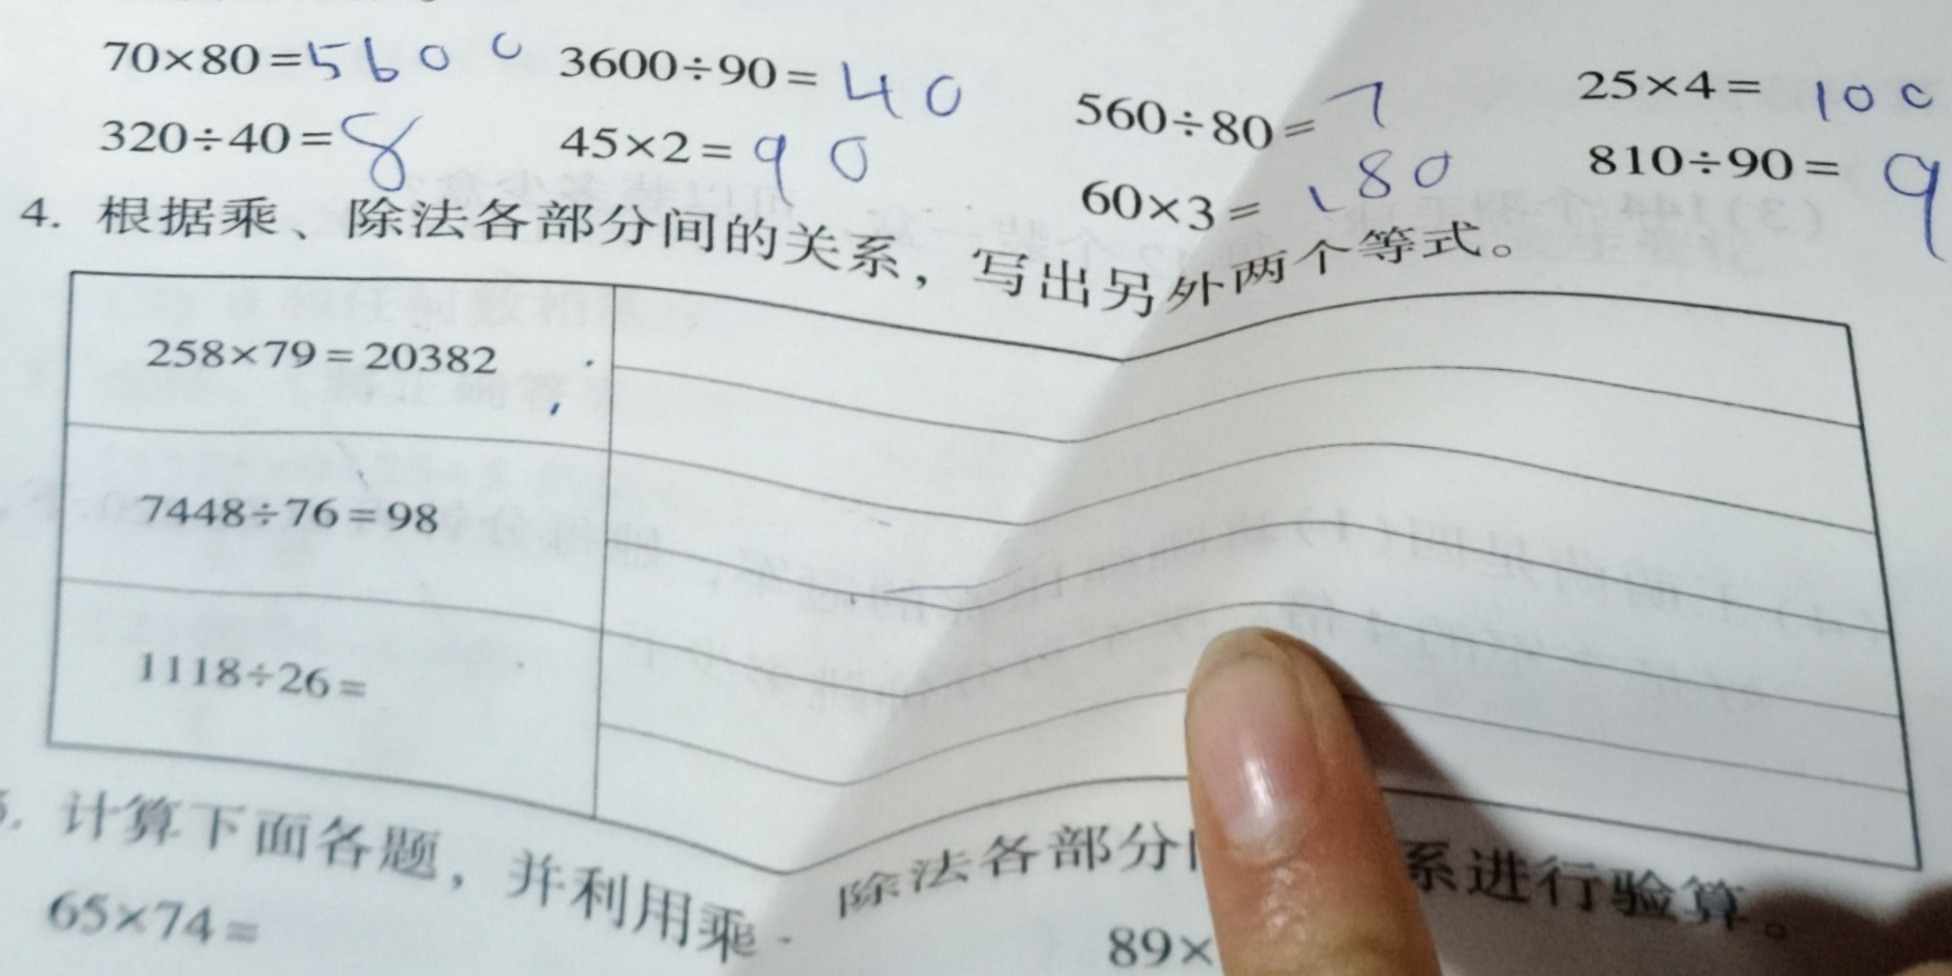 70×80=5600 3600÷90=40 560÷80=7 25×4=100
320÷40=8 45×2=90 60×3=180 810÷90=9
4. 根据乘、除法各部分间的关系，写出另外两个等式。
258×79=20382
7448÷76=98
1118÷26=
. 计算下面各题，并利用乘 除法各部分 系进行验算。
65×74= 89×